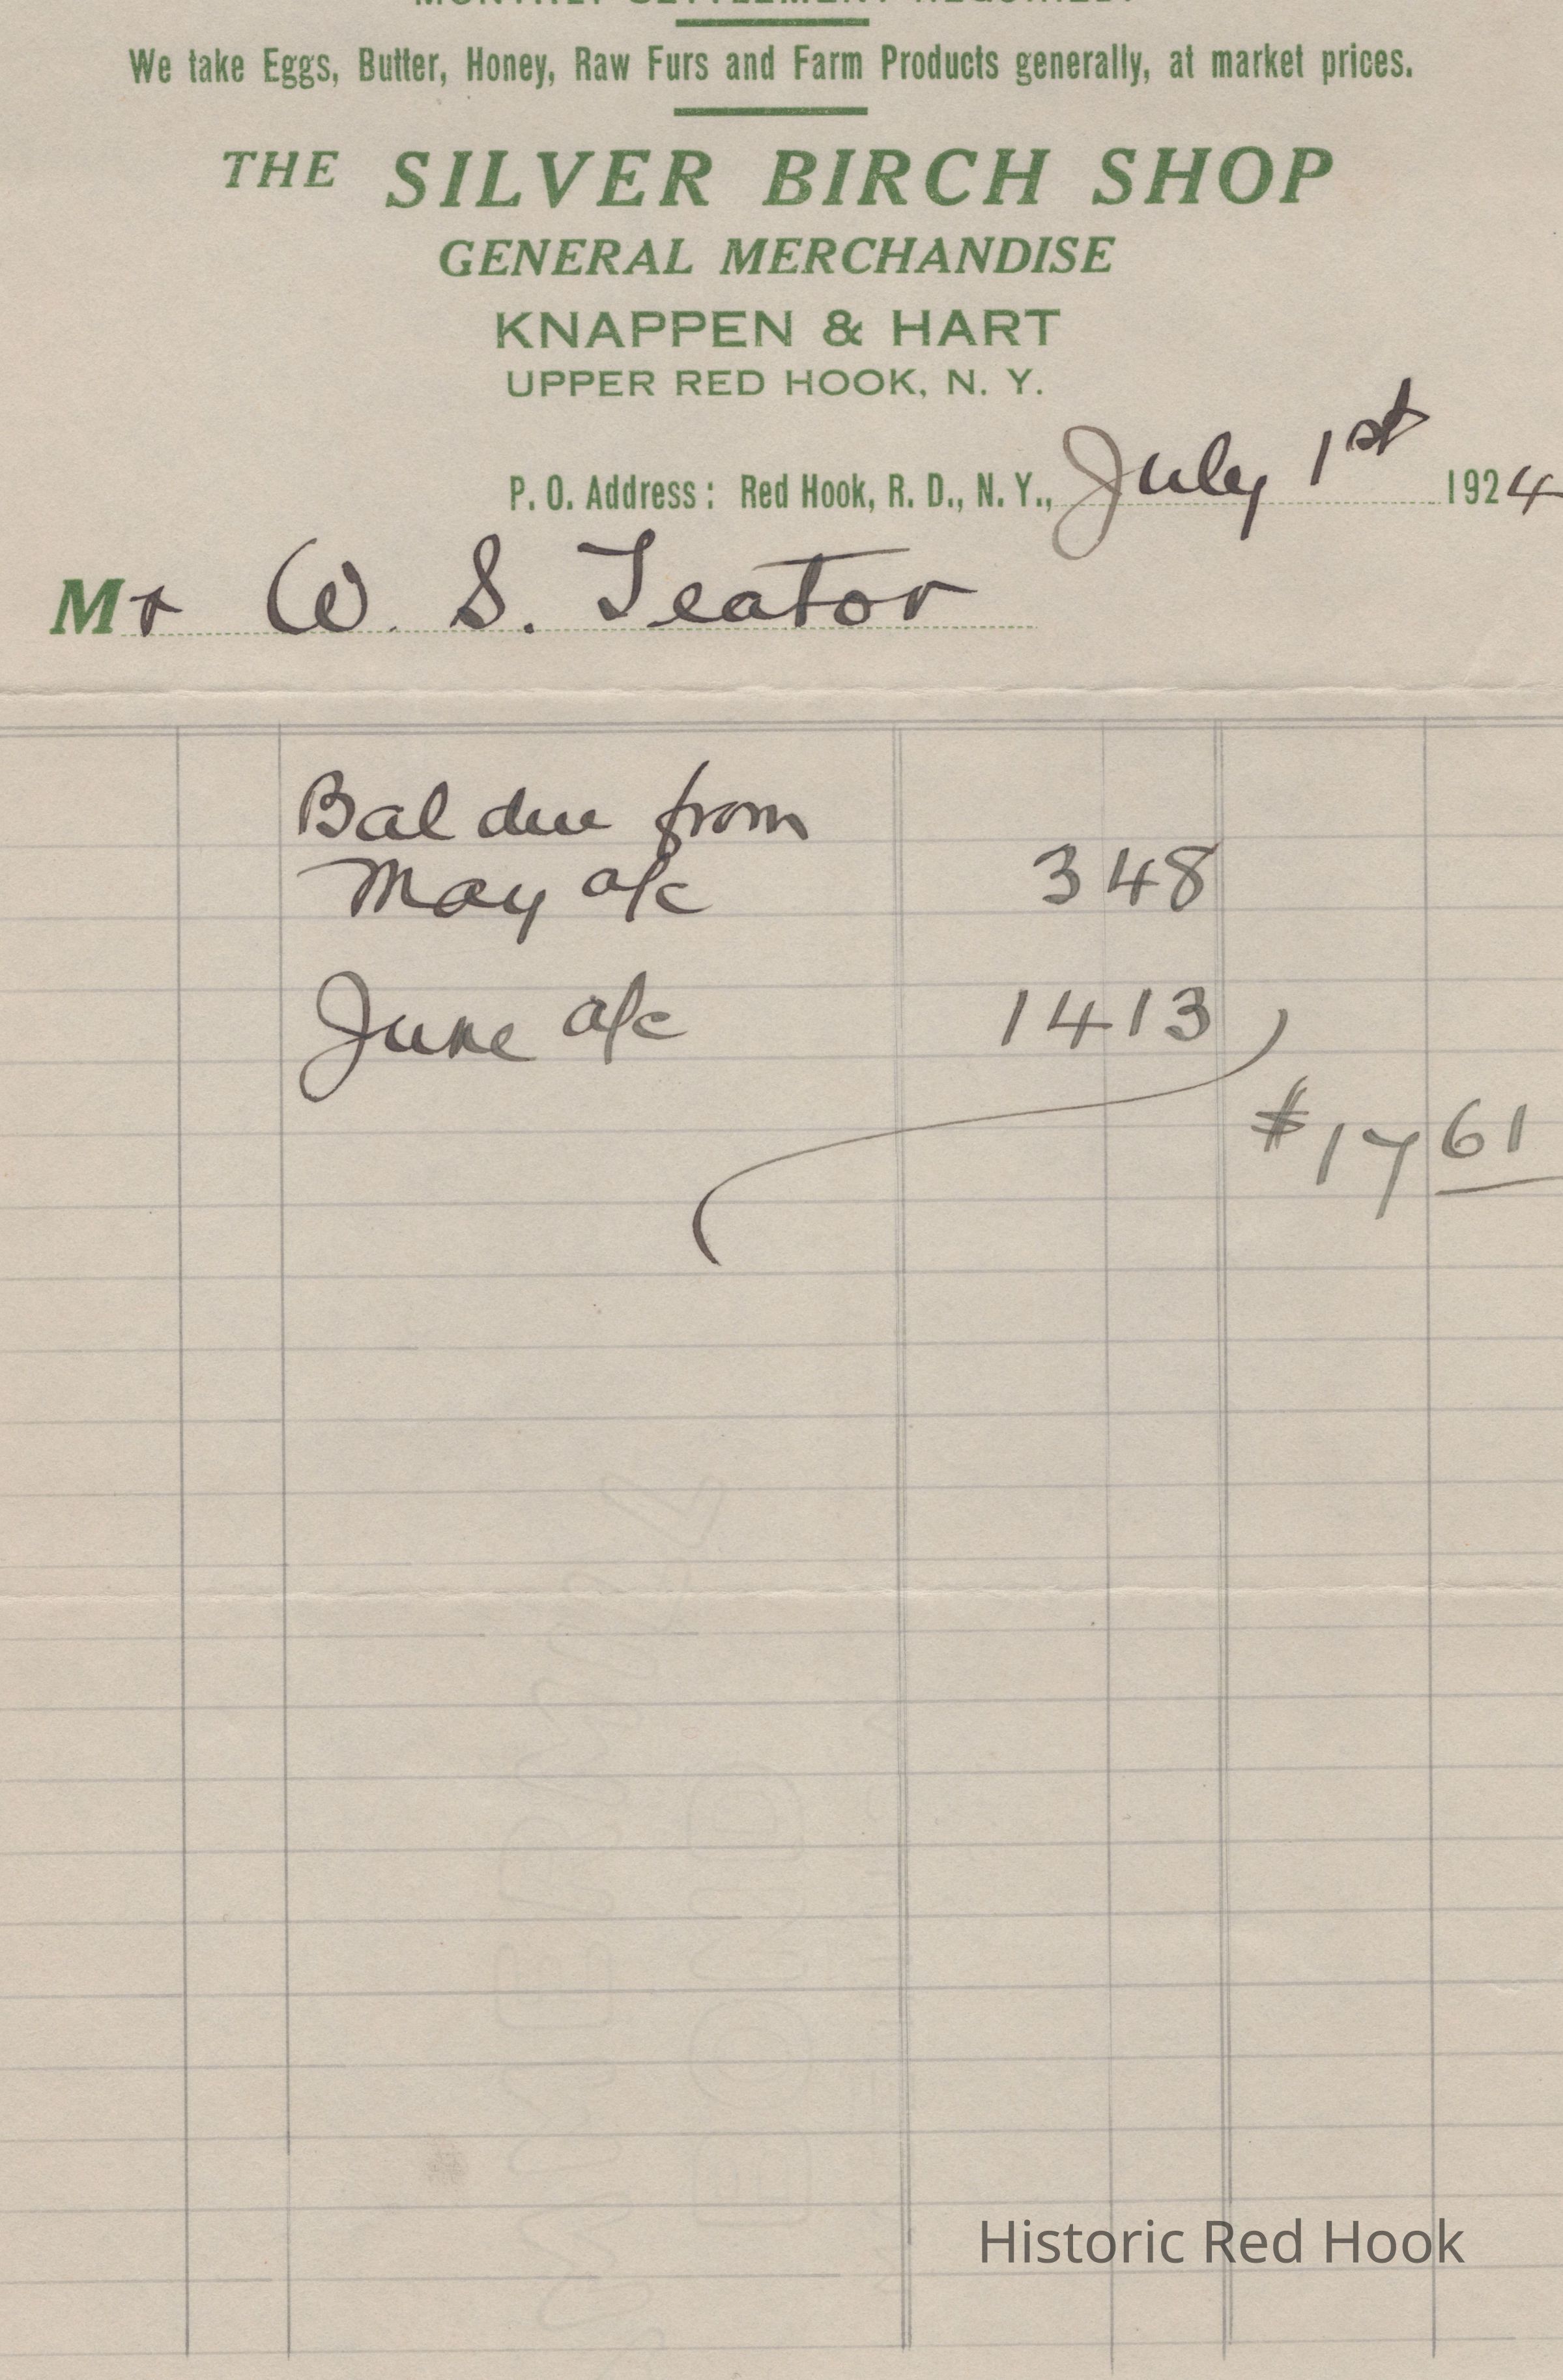 MONTHLY SETTLEMENT REQUIRED.
We take Eggs, Butter, Honey, Raw Furs and Farm Products generally, at market prices.
THE SILVER BIRCH SHOP
GENERAL MERCHANDISE
KNAPPEN & HART
UPPER RED HOOK, N. Y.
P. O. Address: Red Hook, R. D., N. Y., July 1st 1924
Mr W. S. Teator
Bal due from
May a/c 3 48
June a/c 14 13
$17 61
Historic Red Hook